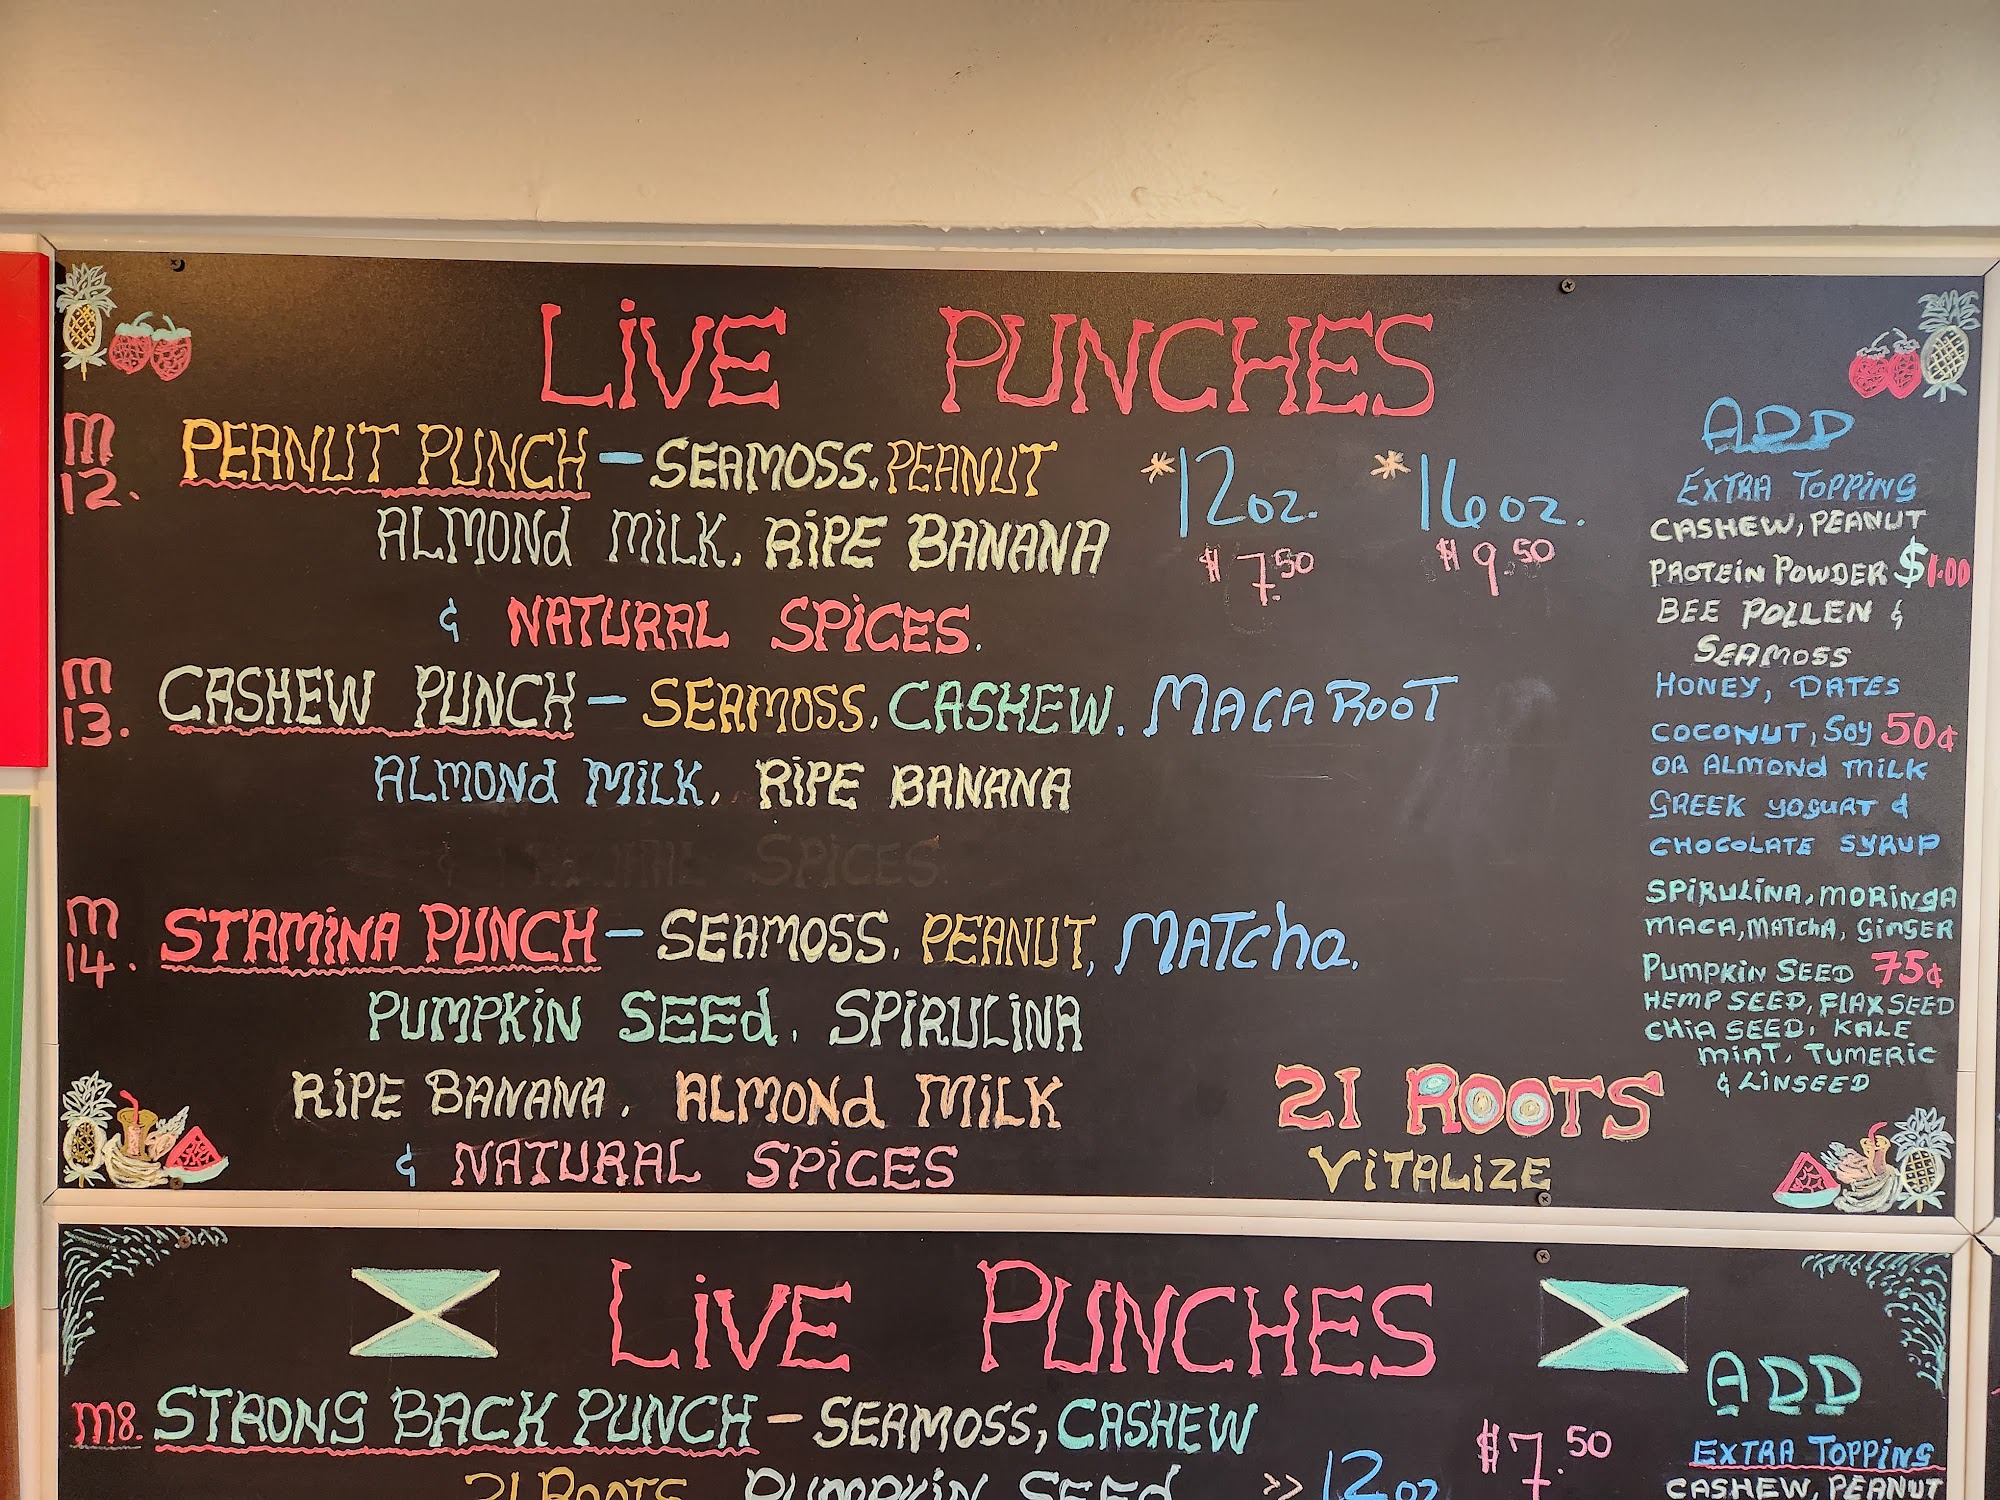 LiVE PUNCHES
M 12. PEANUT PUNCH - SEAMOSS, PEANUT
ALMONd MiLK, RiPE BANANA
& NATURAL SPiCES.
*12oz. *16oz.
$7.50 $9.50
M 13. CASHEW PUNCH - SEAMOSS, CASHEW, MACA ROOT
ALMONd MiLK, RiPE BANANA
SPiCES
M 14. STAMiNA PUNCH - SEAMOSS, PEANUT, MATcha,
PUMPKiN SEEd, SPiRULiNA
RiPE BANANA, ALMONd MiLK
& NATURAL SPiCES
21 ROOTS
ViTALiZE
ADD
EXTRA TOPPiNG
CASHEW, PEANUT
PROTEiN POWDER $1.00
BEE POLLEN &
SEAMOSS
HONEY, DATES
COCONUT, SOY 50¢
OR ALMONd MiLK
GREEK YOGURT &
CHOCOLATE SYRUP
SPiRULiNA, MORiNGA
MACA, MATCHA, GiNGER
PUMPKiN SEED 75¢
HEMP SEED, FLAXSEED
CHiA SEED, KALE
MiNT, TUMERiC
& LiNSEED
LiVE PUNCHES
M8. STRONG BACK PUNCH - SEAMOSS, CASHEW
21 ROOTS PUMPKiN SEEd
>> 12oz $7.50
ADD
EXTRA TOPPiNG
CASHEW, PEANUT